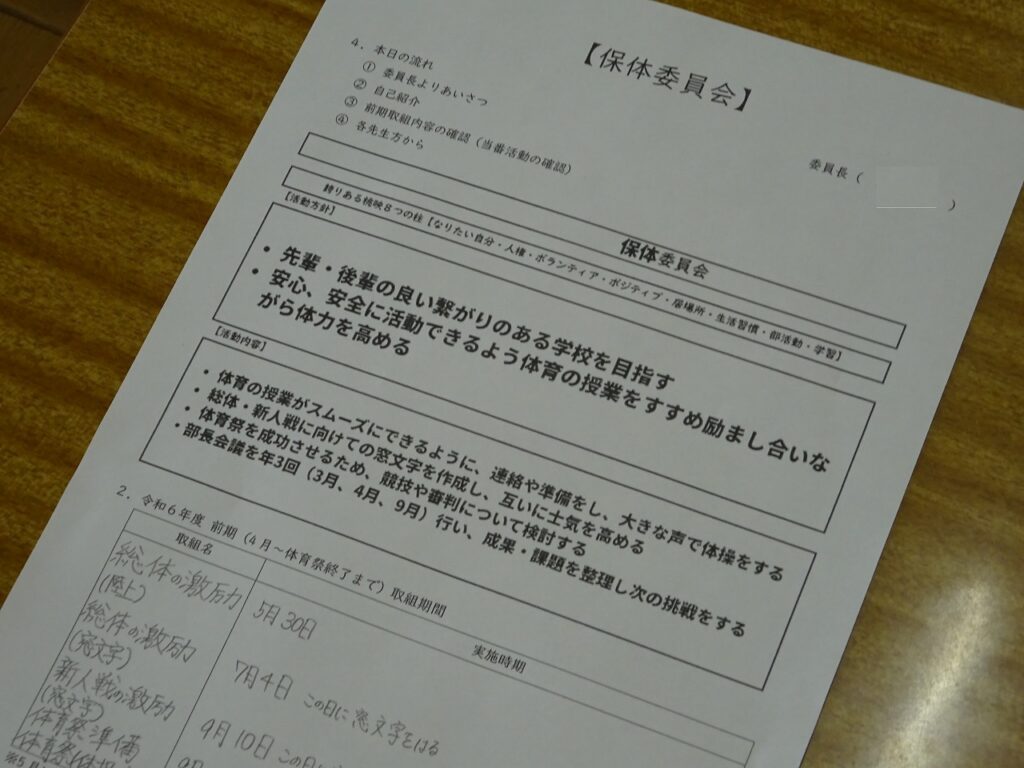 【保体委員会】
委員長（　　　）
4．本日の流れ
① 委員長よりあいさつ
② 自己紹介
③ 前期取組内容の確認（当番活動の確認）
④ 各先生方から
保体委員会
誇りある桃映８つの柱【なりたい自分・人権・ボランティア・ポジティブ・居場所・生活習慣・部活動・学習】
【活動方針】
• 先輩・後輩の良い繋がりのある学校を目指す
• 安心、安全に活動できるよう体育の授業をすすめ励まし合いな
がら体力を高める
【活動内容】
• 体育の授業がスムーズにできるように、連絡や準備をし、大きな声で体操をする
• 総体・新人戦に向けての窓文字を作成し、互いに士気を高める
• 体育祭を成功させるため、競技や審判について検討する
• 部長会議を年3回（3月、4月、9月）行い、成果・課題を整理し次の挑戦をする
2．令和６年度 前期（４月～体育祭終了まで）取組期間
取組名 実施時期
総体の激励(陸上) 5月30日
総体の激励(窓文字) 7月4日 この日に窓文字をはる
新人戦の激励(窓文字) 9月10日 この日に
体育祭準備 9月